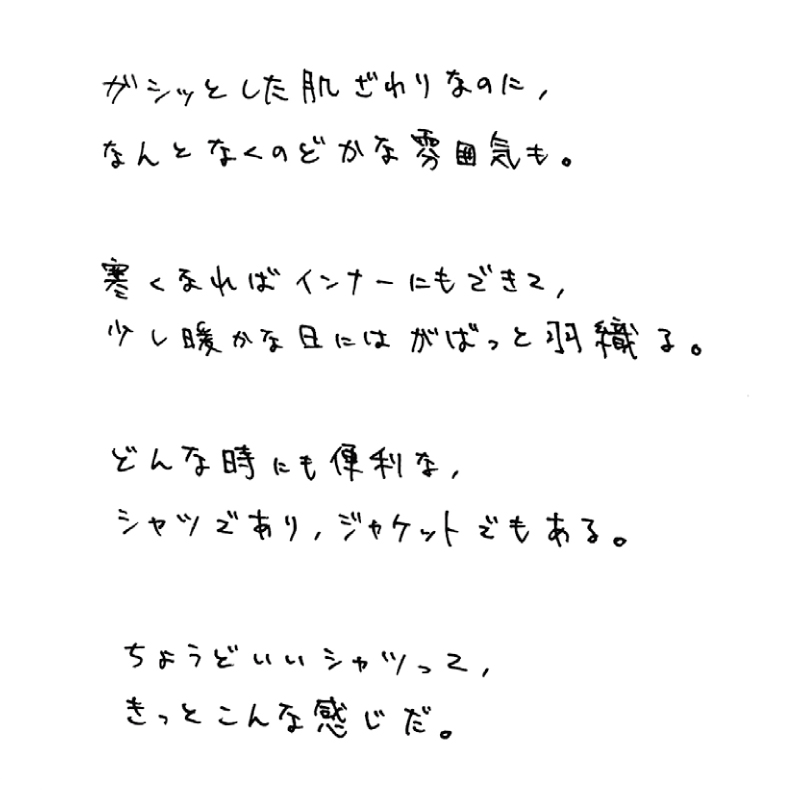 ガシッとした肌ざわりなのに,
なんとなくのどかな雰囲気も。
寒くなればインナーにもできて,
少し暖かな日にはがばっと羽織る。
どんな時にも便利な,
シャツであり,ジャケットでもある。
ちょうどいいシャツって,
きっとこんな感じだ。